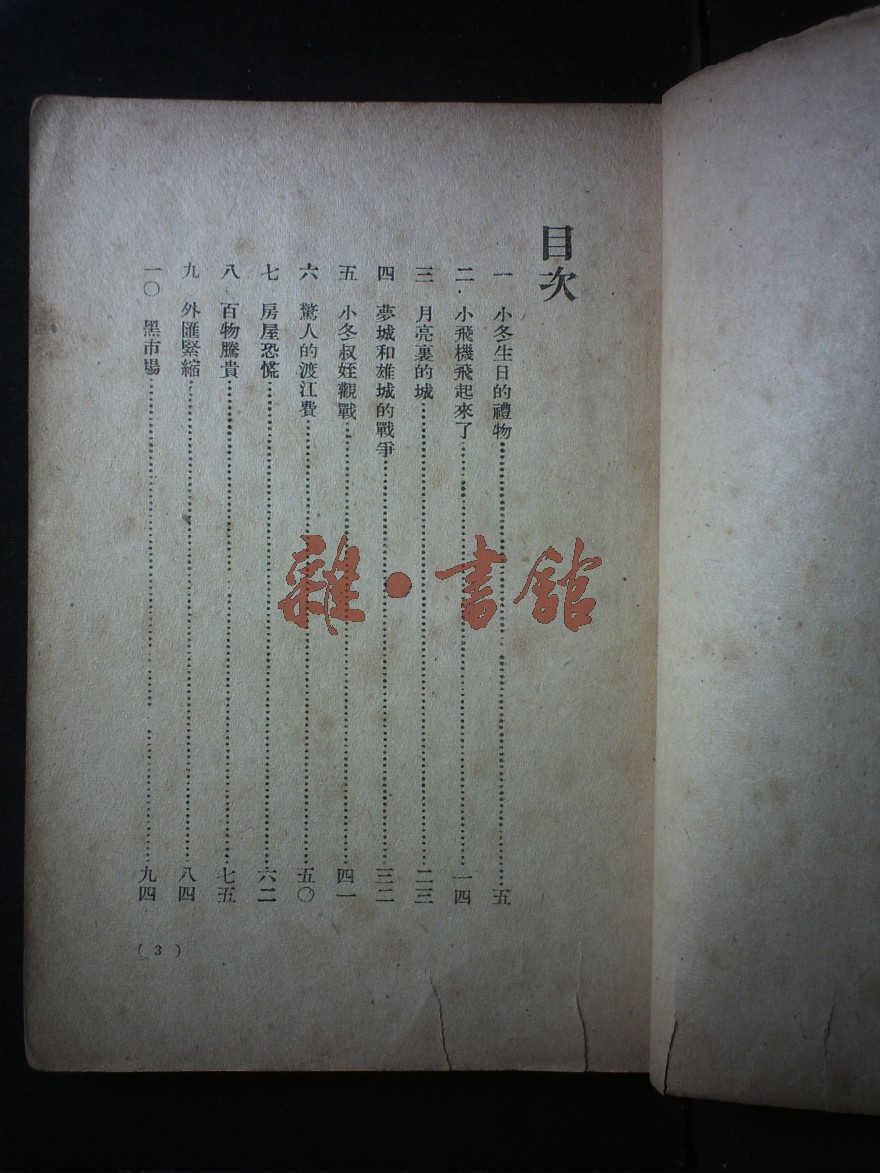 目次
一 小冬生日的禮物……五
二 小飛機飛起來了……一四
三 月亮裏的城……二三
四 夢城和雄城的戰爭……三二
五 小冬叔姪觀戰……四一
六 驚人的渡江費……五〇
七 房屋恐慌……六二
八 百物騰貴……七五
九 外匯緊縮……八四
一〇 黑市場……九四
(3)
雜·書館